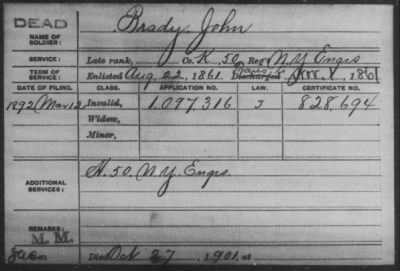 DEAD
NAME OF SOLDIER: Brady, John
SERVICE: Late rank, Co. K, 50, Reg't N.Y. Engrs
TERM OF SERVICE: Enlisted Aug. 22, 1861 Discharged 1861
DATE OF FILING. CLASS. APPLICATION NO. LAW. CERTIFICATE NO.
1892 Mar 12 Invalid, 1.097.316 J 828.694
Widow,
Minor,
ADDITIONAL SERVICES: H. 50. N.Y. Engrs.
REMARKS:
M. M.
Died Oct 27, 1901, at